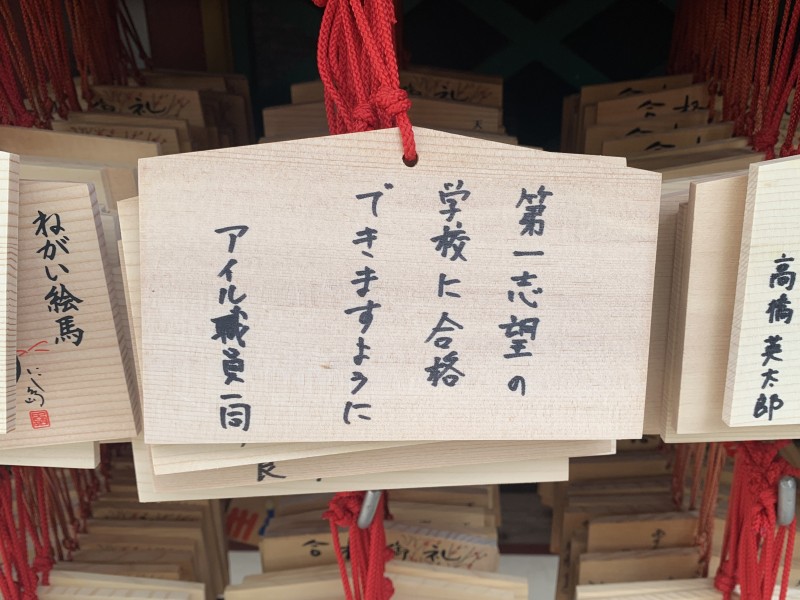 第一志望の
学校に合格
できますように
アイル職員一同
高橋英太郎
ねがい絵馬
合
礼